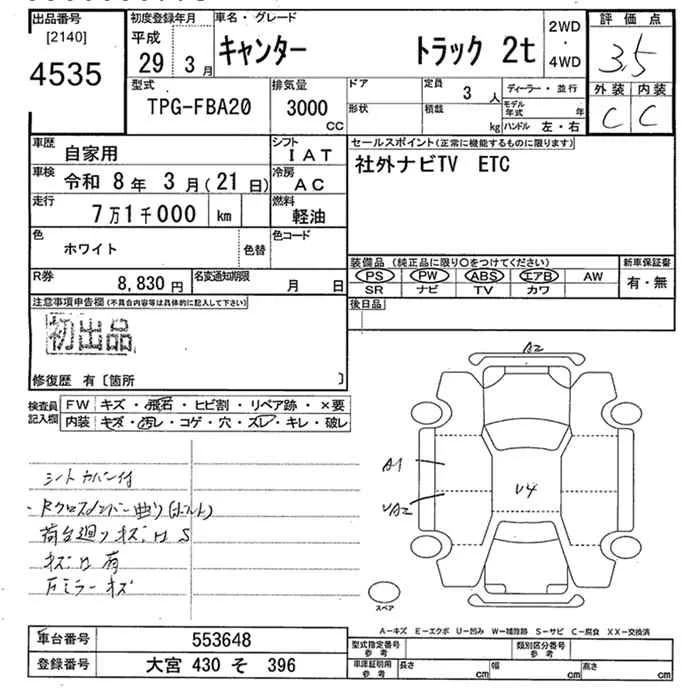 出品番号
[2140]
4535
初度登録年月
平成
29 3月
車名・グレード
キャンター トラック 2t
2WD
・
4WD
評価点
3.5
外装 内装
C C
型式
TPG-FBA20
排気量
3000
CC
ドア
形状
定員
3 人
積載
kg
ディーラー・並行
モデル年式 年
ハンドル 左・右
車歴
自家用
シフト
IAT
車検
令和 8年 3月(21日)
冷房
AC
走行
7万1千000 km
燃料
軽油
色
ホワイト
色替
色コード
R券
8,830円
名変通知期限
月 日
セールスポイント(正常に機能するものに限ります)
社外ナビTV ETC
装備品(純正品に限り○をつけてください)
PS PW ABS エアB AW
SR ナビ TV カワ
新車保証書
有・無
後日品
注意事項申告欄(不具合内容等は具体的に記入して下さい)
初出品
修復歴 有〔箇所 〕
検査員
記入欄
FW キズ・飛石・ヒビ割・リペア跡・×要
内装 キズ・汚レ・コゲ・穴・スレ・キレ・破レ
シートカバー付
・Rクロスメンバー曲り
荷台廻りキズ凹S
キズ凹有
ミラーキズ
A2
A1
V4
スペア
A-キズ E-エクボ U-凹み W-補修跡 S-サビ C-腐食 XX-交換済
車台番号
553648
登録番号
大宮 430 そ 396
型式指定番号
参考
類別区分番号
参考
車庫証明用
参考
長さ cm
幅 cm
高さ cm